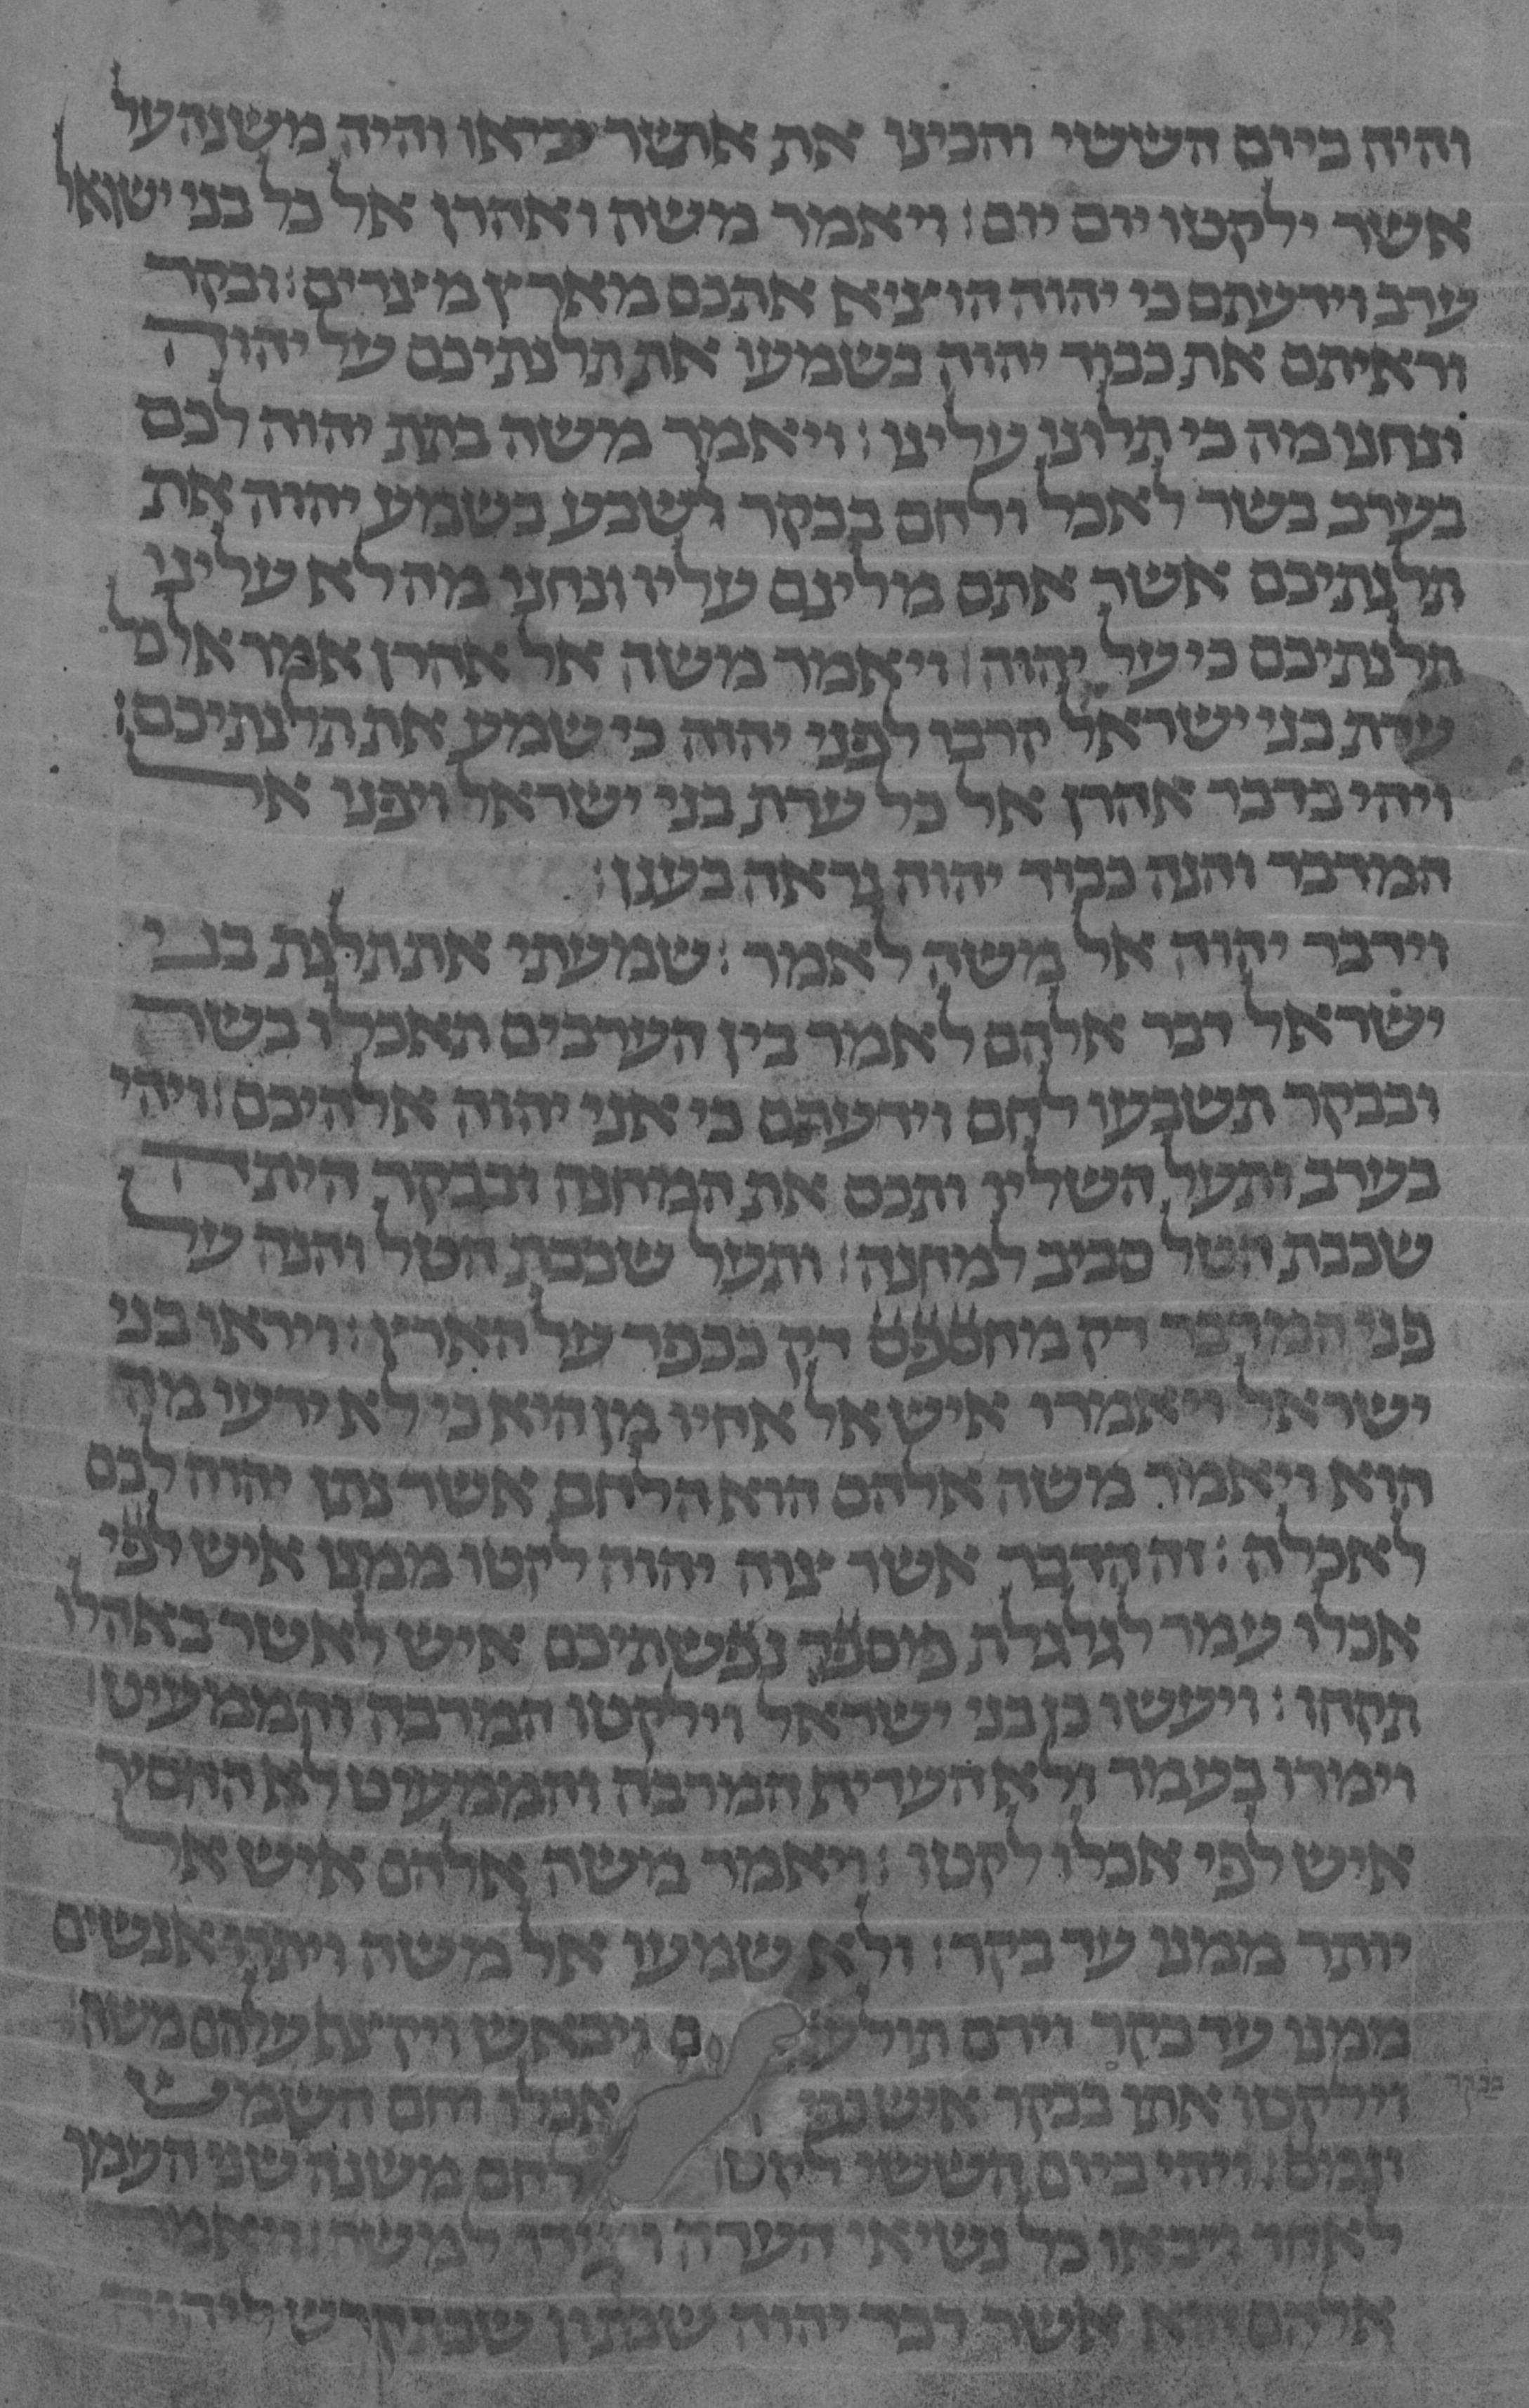 והיה ביום הששי והכינו את אשר יביאו והיה משנה על
אשר ילקטו יום יום׃ ויאמר משה ואהרן אל כל בני ישראל
ערב וידעתם כי יהוה הוציא אתכם מארץ מצרים׃ ובקר
וראיתם את כבוד יהוה בשמעו את תלנתיכם על יהוה
ונחנו מה כי תלונו עלינו׃ ויאמר משה בתת יהוה לכם
בערב בשר לאכל ולחם בבקר לשבע בשמע יהוה את
תלנתיכם אשר אתם מלינם עליו ונחנו מה לא עלינו
תלנתיכם כי על יהוה׃ ויאמר משה אל אהרן אמר אל כל
עדת בני ישראל קרבו לפני יהוה כי שמע את תלנתיכם׃
ויהי כדבר אהרן אל כל עדת בני ישראל ויפנו אל
המדבר והנה כבוד יהוה נראה בענן׃
וידבר יהוה אל משה לאמר׃ שמעתי את תלנת בני
ישראל דבר אלהם לאמר בין הערבים תאכלו בשר
ובבקר תשבעו לחם וידעתם כי אני יהוה אלהיכם׃ ויהי
בערב ותעל השליו ותכס את המחנה ובבקר היתה
שכבת הטל סביב למחנה׃ ותעל שכבת הטל והנה על
פני המדבר דק מחספס דק ככפר על הארץ׃ ויראו בני
ישראל ויאמרו איש אל אחיו מן הוא כי לא ידעו מה
הוא ויאמר משה אלהם הוא הלחם אשר נתן יהוה לכם
לאכלה׃ זה הדבר אשר צוה יהוה לקטו ממנו איש לפי
אכלו עמר לגלגלת מספר נפשתיכם איש לאשר באהלו
תקחו׃ ויעשו כן בני ישראל וילקטו המרבה והממעיט׃
וימדו בעמר ולא העדיף המרבה והממעיט לא החסיר
איש לפי אכלו לקטו׃ ויאמר משה אלהם איש אל
יותר ממנו עד בקר׃ ולא שמעו אל משה ויותרו אנשים
ממנו עד בקר וירם תולעים ויבאש ויקצף עלהם משה׃
וילקטו אתו בבקר איש כפי אכלו וחם השמש
בבקר
ונמס׃ ויהי ביום הששי לקטו לחם משנה שני העמר
לאחד ויבאו כל נשיאי העדה ויגידו למשה׃ ויאמר
אלהם הוא אשר דבר יהוה שבתון שבת קדש ליהוה